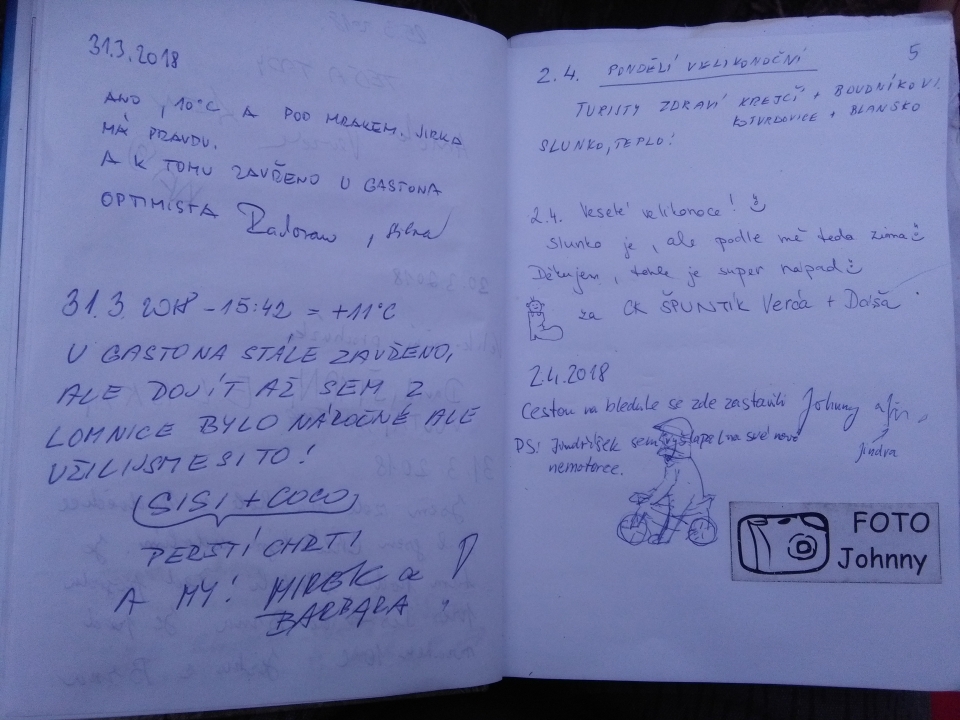 31.3.2018
ANO, 10°C A POD MRAKEM. JIRKA
MÁ PRAVDU.
A K TOMU ZAVŘENO U GASTONA
OPTIMISTA
31.3. 2018 - 15:42 = +11°C
U GASTONA STÁLE ZAVŘENO,
ALE DOJÍT AŽ SEM Z
LOMNICE BYLO NÁROČNÉ ALE
UŽILI JSME SI TO!
(SISI + COCO)
PERŠTÍ CHRTI
A MY! MIREK a
BARBARA!
5
2.4. PONDĚLÍ VELIKONOČNÍ
TURISTY ZDRAVÍ KREJČÍ + BOUDNÍKOVI.
+ BLANSKO
SLUNKO, TEPLO!
2.4. Veselé velikonoce!
Slunko je, ale podle mě teda zima
Děkujem, tohle je super nápad
za CK ŠPUNTÍK Verča +
2.4.2018
Cestou na bledule se zde zastavili Johnny
Jindra
PS: Jindříšek sem vyšlapal na své nové
nemotorce.
FOTO
Johnny